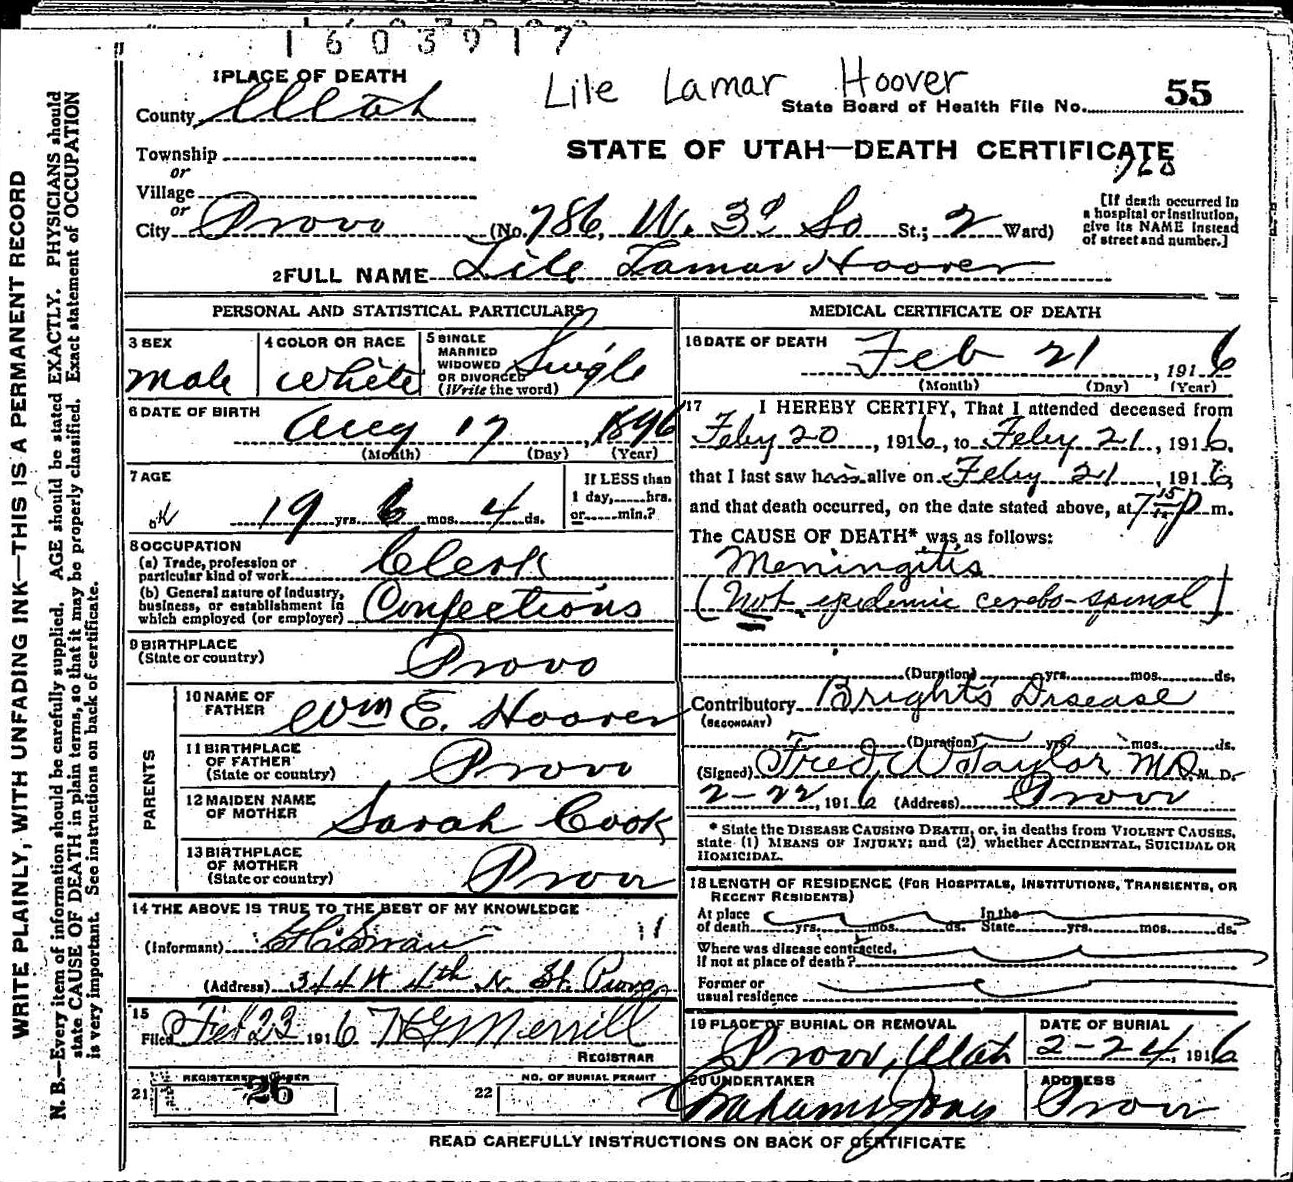 1603917
1 PLACE OF DEATH
Lile Lamar Hoover
County Utah
State Board of Health File No. 55
Township
or
STATE OF UTAH—DEATH CERTIFICATE
760
Village
or
City Provo (No. 786, W. 3d So St.; 2 Ward)
[If death occurred in
a hospital or institution,
give its NAME instead
of street and number.]
2 FULL NAME Lile Lamar Hoover
PERSONAL AND STATISTICAL PARTICULARS
3 SEX
male
4 COLOR OR RACE
White
5 SINGLE
MARRIED
WIDOWED
OR DIVORCED
(Write the word)
Single
6 DATE OF BIRTH
Aug 17, 1896
(Month) (Day) (Year)
7 AGE
ok 19 yrs. 6 mos. 4 ds.
If LESS than
1 day, hrs.
or min.?
8 OCCUPATION
(a) Trade, profession or
particular kind of work Clerk
(b) General nature of industry,
business, or establishment in
which employed (or employer) Confections
9 BIRTHPLACE
(State or country) Provo
PARENTS
10 NAME OF
FATHER Wm E. Hoover
11 BIRTHPLACE
OF FATHER
(State or country) Provo
12 MAIDEN NAME
OF MOTHER Sarah Cook
13 BIRTHPLACE
OF MOTHER
(State or country) Provo
14 THE ABOVE IS TRUE TO THE BEST OF MY KNOWLEDGE
(Informant) Swan
(Address) 344 W 4th N. St. Provo
15
Filed Feb 23 1916 Merrill
REGISTRAR
21 REGISTERED NUMBER
26
22 NO. OF BURIAL PERMIT
MEDICAL CERTIFICATE OF DEATH
16 DATE OF DEATH
Feb 21, 1916
(Month) (Day) (Year)
17 I HEREBY CERTIFY, That I attended deceased from
Feby 20, 1916, to Feby 21, 1916,
that I last saw him alive on Feby 21, 1916,
and that death occurred, on the date stated above, at 7 15 p m.
The CAUSE OF DEATH* was as follows:
Meningitis
(Not epidemic cerebo-spinal)
(Duration) yrs. mos. ds.
Contributory Brights Disease
(SECONDARY)
(Duration) yrs. mos. ds.
(Signed) Fred W Taylor MD M. D.
2-22, 1916 (Address) Provo
* State the DISEASE CAUSING DEATH, or, in deaths from VIOLENT CAUSES,
state (1) MEANS OF INJURY; and (2) whether ACCIDENTAL, SUICIDAL OR
HOMICIDAL.
18 LENGTH OF RESIDENCE (FOR HOSPITALS, INSTITUTIONS, TRANSIENTS, OR
RECENT RESIDENTS)
At place In the
of death yrs. mos. ds. State yrs. mos. ds.
Where was disease contracted,
If not at place of death?
Former or
usual residence
19 PLACE OF BURIAL OR REMOVAL
Provo, Utah
DATE OF BURIAL
2-24, 1916
20 UNDERTAKER
ADDRESS
Provo
READ CAREFULLY INSTRUCTIONS ON BACK OF CERTIFICATE
WRITE PLAINLY, WITH UNFADING INK—THIS IS A PERMANENT RECORD
N. B.—Every item of information should be carefully supplied. AGE should be stated EXACTLY. PHYSICIANS should
state CAUSE OF DEATH in plain terms, so that it may be properly classified. Exact statement of OCCUPATION
is very important. See instructions on back of certificate.